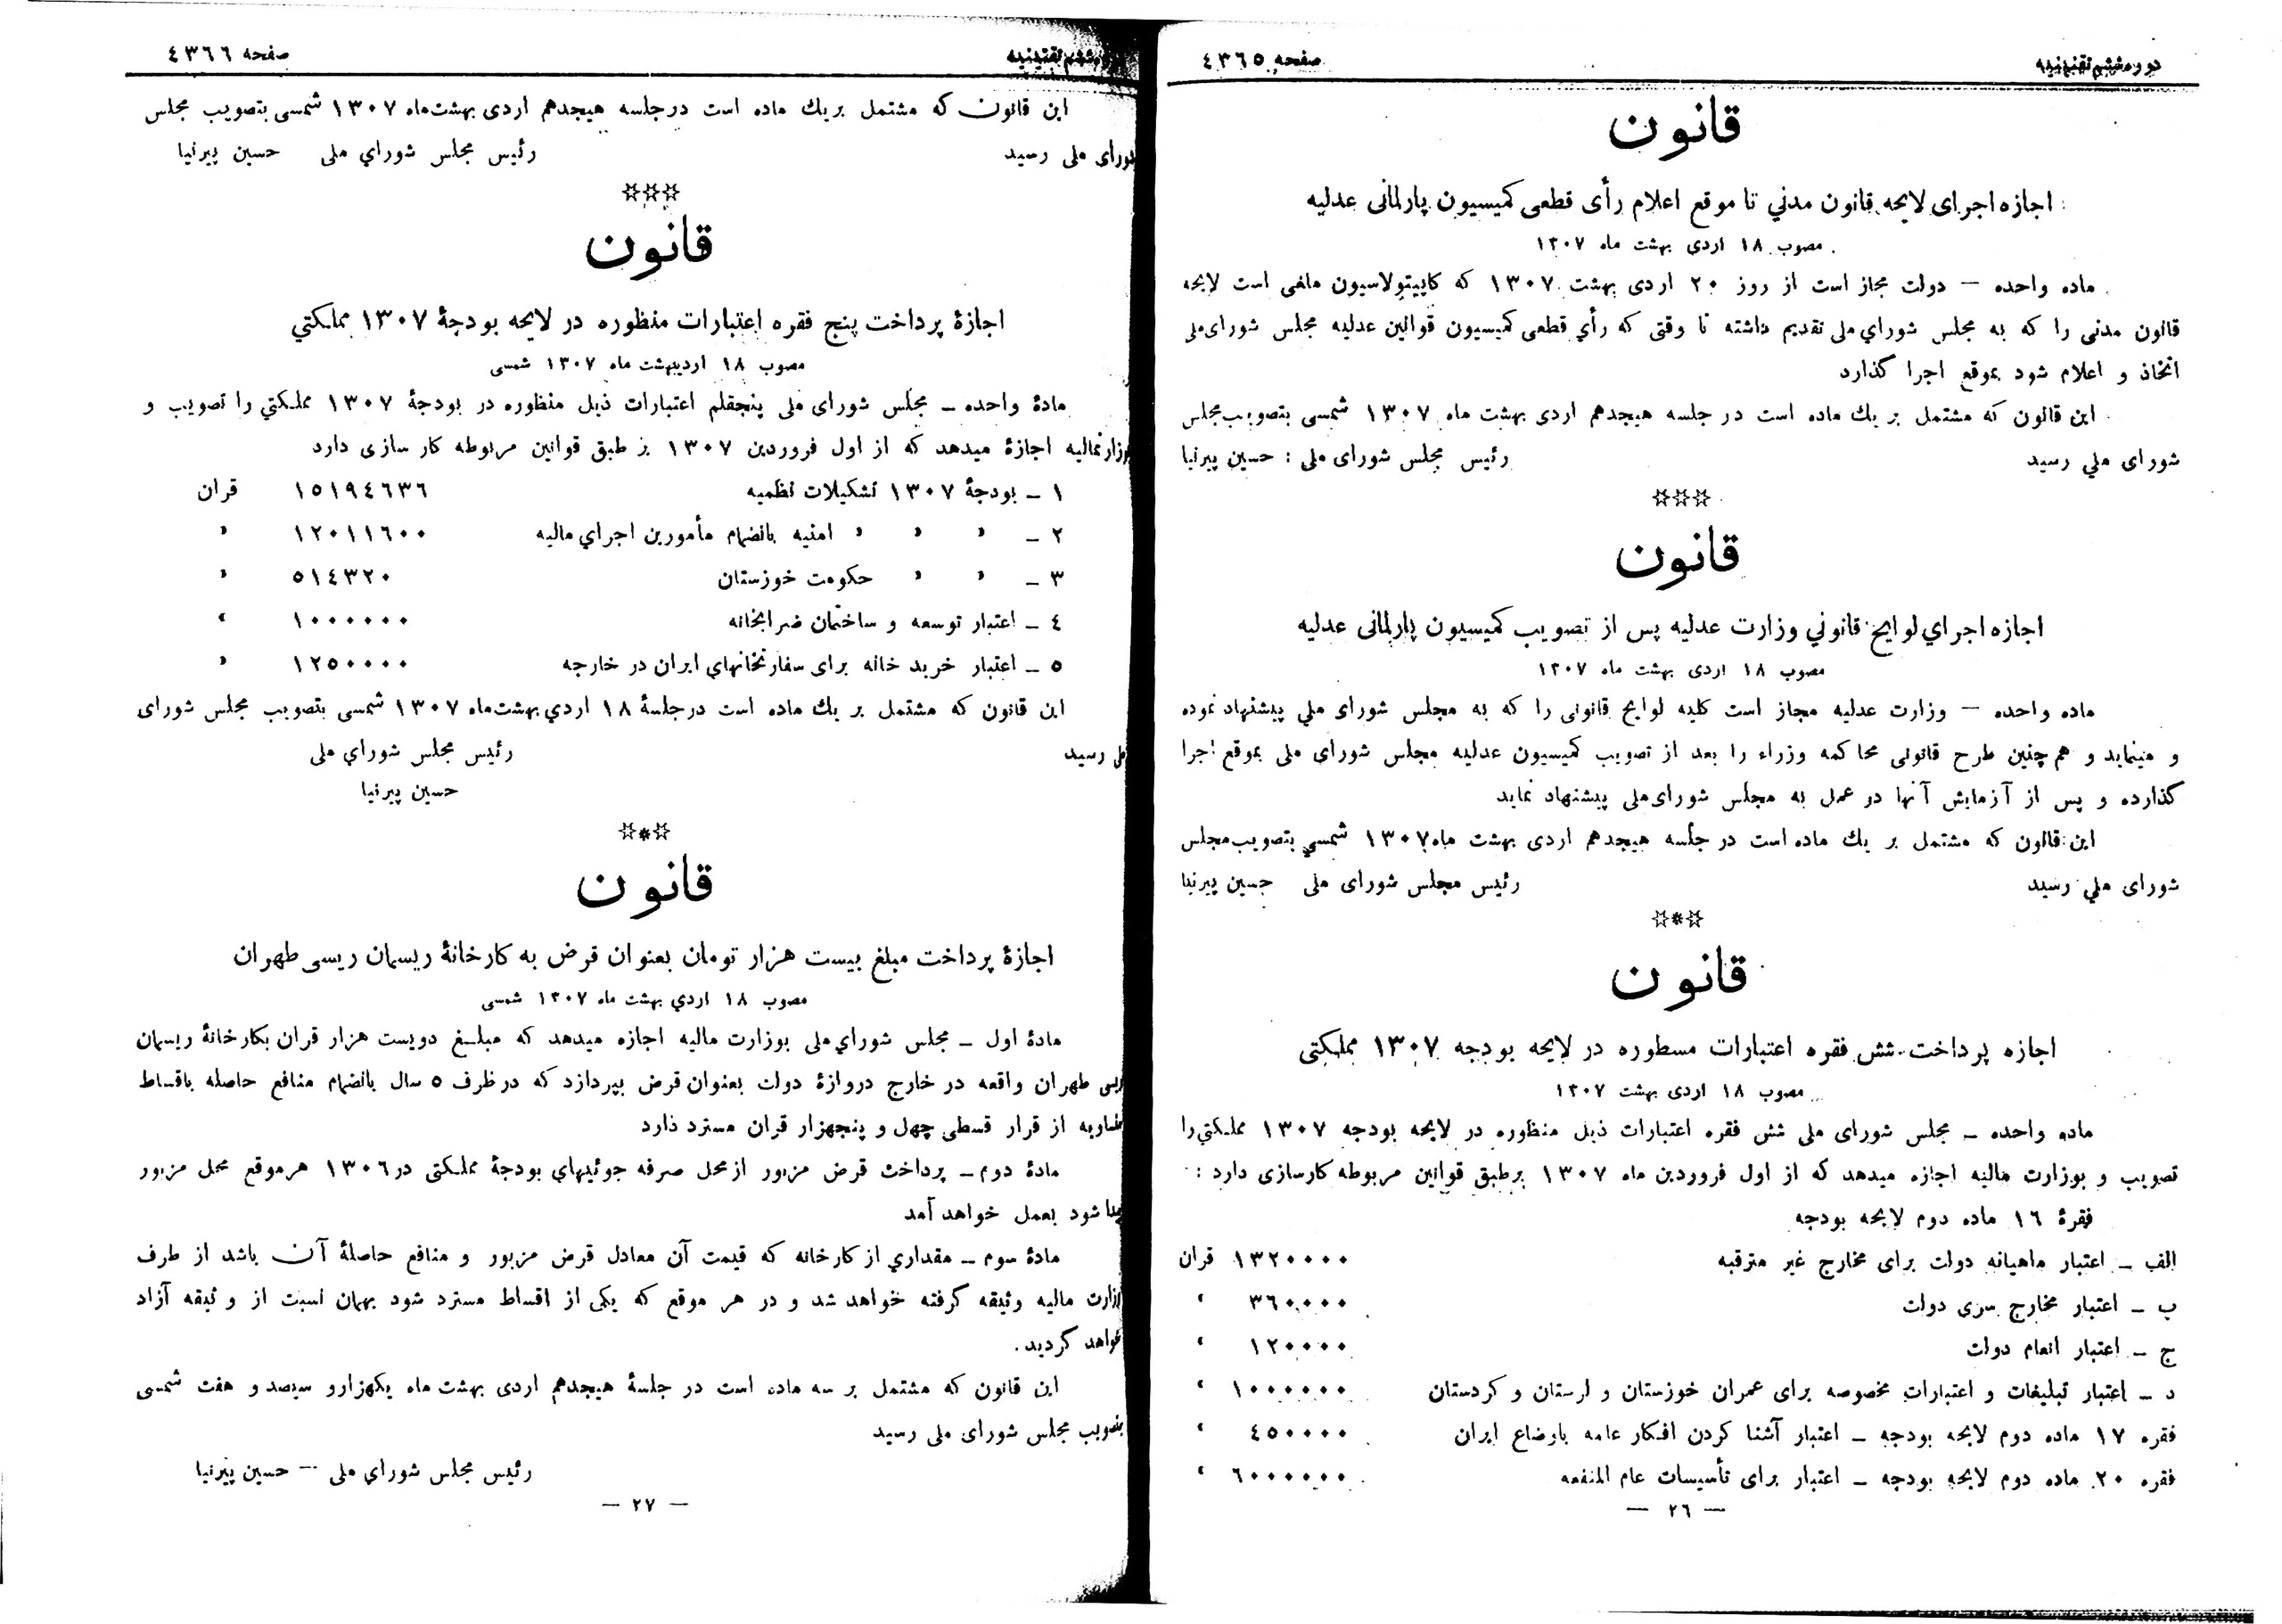 دوره ششم تقنینیه
صفحه ٤٣٦٥
قانون
اجازه اجرای لایحه قانون مدني تا موقع اعلام رأی قطعی کمیسیون پارلمانی عدلیه
مصوب ۱۸ اردی بهشت ماه ۱۳۰۷
ماده واحده — دولت مجاز است از روز ۲۰ اردی بهشت ۱۳۰۷ که کاپیتولاسیون ملغی است لایحه
قانون مدنی را که به مجلس شورای ملی تقدیم داشته تا وقتی که رأی قطعی کمیسیون قوانین عدلیه مجلس شورای ملی
اتخاذ و اعلام شود بموقع اجرا گذارد
این قانون که مشتمل بر یك ماده است در جلسه هیجدهم اردی بهشت ماه ۱۳۰۷ شمسی بتصویب مجلس
شورای ملي رسید
رئیس مجلس شورای ملی : حسین پیرنیا
☆☆☆
قانون
اجازه اجراي لوایح قانوني وزارت عدلیه پس از تصویب کمیسیون پارلمانی عدلیه
مصوب ۱۸ اردی بهشت ماه ۱۳۰۷
ماده واحده — وزارت عدلیه مجاز است کلیه لوایح قانونی را که به مجلس شورای ملي پیشنهاد نموده
و مینماید و هم چنین طرح قانونی محاکمه وزراء را بعد از تصویب کمیسیون عدلیه مجلس شورای ملی بموقع اجرا
گذارده و پس از آزمایش آنها در عمل به مجلس شورای ملی پیشنهاد نماید
این قانون که مشتمل بر یك ماده است در جلسه هیجدهم اردی بهشت ماه ۱۳۰۷ شمسي بتصویب مجلس
شورای ملي رسید
رئیس مجلس شورای ملی حسین پیرنیا
☆*☆
قانون
اجازه پرداخت شش فقره اعتبارات مسطوره در لایحه بودجه ۱۳۰۷ مملکتی
مصوب ۱۸ اردی بهشت ۱۳۰۷
ماده واحده ــ مجلس شورای ملی شش فقره اعتبارات ذیل منظوره در لایحه بودجه ۱۳۰۷ مملکتي را
تصویب و بوزارت مالیه اجازه میدهد که از اول فروردین ماه ۱۳۰۷ برطبق قوانین مربوطه کارسازی دارد :
فقرۀ ١٦ ماده دوم لایحه بودجه
الف ــ اعتبار ماهیانه دولت برای مخارج غیر مترقبه ۱۳۲۰۰۰۰ قران
ب ــ اعتبار مخارج سری دولت ۳٦۰۰۰۰ ‹
ج ــ اعتبار انعام دولت ۱۲۰۰۰۰ ‹
د ــ اعتبار تبلیغات و اعتبارات مخصوصه برای عمران خوزستان و لرستان و کردستان ۱۰۰۰۰۰۰ ‹
فقره ۱۷ ماده دوم لایحه بودجه ــ اعتبار آشنا کردن افکار عامه باوضاع ایران ٤٥۰۰۰۰ ‹
فقره ۲۰ ماده دوم لایحه بودجه ــ اعتبار برای تأسیسات عام المنفعه ٦۰۰۰۰۰۰ ‹
— ٢٦ —
ششم تقنینیه
صفحه ٤٣٦٦
این قانون که مشتمل بر یك ماده است در جلسه هیجدهم اردی بهشت ماه ۱۳۰۷ شمسی بتصویب مجلس
شورای ملی رسید
رئیس مجلس شوراي ملی حسین پیرنیا
☆☆☆
قانون
اجازۀ پرداخت پنج فقره اعتبارات منظوره در لایحه بودجۀ ۱۳۰۷ مملکتي
مصوب ۱۸ اردیبهشت ماه ۱۳۰۷ شمسی
مادۀ واحده ــ مجلس شورای ملی پنجقلم اعتبارات ذیل منظوره در بودجۀ ۱۳۰۷ مملکتي را تصویب و
وزارتمالیه اجازۀ میدهد که از اول فروردین ۱۳۰۷ بر طبق قوانین مربوطه کار سازی دارد
۱ ــ بودجۀ ۱۳۰۷ تشکیلات نظمیه ١٥١٩٤٦٣٦ قران
۲ ــ ‹ ‹ ‹ امنیه بانضمام مأمورین اجراي مالیه ۱۲۰۱۱٦۰۰ ‹
۳ ــ ‹ ‹ حکومت خوزستان ٥١٤٣٢٠ ‹
٤ ــ اعتبار توسعه و ساختمان ضرابخانه ۱۰۰۰۰۰۰ ‹
٥ ــ اعتبار خرید خانه برای سفارتخانهاي ایران در خارجه ۱۲٥۰۰۰۰ ‹
این قانون که مشتمل بر یك ماده است درجلسۀ ۱۸ اردي بهشت ماه ۱۳۰۷ شمسی بتصویب مجلس شورای
ملی رسید
رئیس مجلس شوراي ملی
حسین پیرنیا
☆*☆
قانون
اجازۀ پرداخت مبلغ بیست هزار تومان بعنوان قرض به کارخانۀ ریسمان ریسی طهران
مصوب ۱۸ اردي بهشت ماه ۱۳۰۷ شمسی
مادۀ اول ــ مجلس شوراي ملی بوزارت مالیه اجازه میدهد که مبلغ دویست هزار قران بکارخانۀ ریسمان
ریسی طهران واقعه در خارج دروازۀ دولت بعنوان قرض بپردازد که در ظرف ٥ سال بانضمام منافع حاصله باقساط
متساویه از قرار قسطی چهل و پنجهزار قران مسترد دارد
مادۀ دوم ــ پرداخت قرض مزبور از محل صرفه جوئیهاي بودجۀ مملکتی در ۱۳۰٦ هر موقع محل مزبور
پیدا شود بعمل خواهد آمد
مادۀ سوم ــ مقداري از کارخانه که قیمت آن معادل قرض مزبور و منافع حاصلۀ آن باشد از طرف
وزارت مالیه وثیقه گرفته خواهد شد و در هر موقع که یکی از اقساط مسترد شود بهمان نسبت از وثیقه آزاد
خواهد گردید .
این قانون که مشتمل بر سه ماده است در جلسۀ هیجدهم اردی بهشت ماه یکهزارو سیصد و هفت شمسی
بتصویب مجلس شورای ملی رسید
رئیس مجلس شوراي ملی — حسین پیرنیا
— ۲۷ —